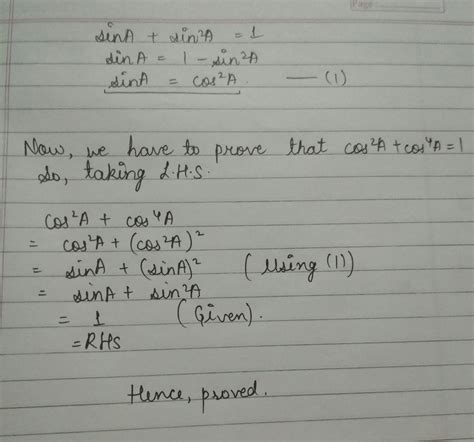 Page
sinA + sin²A = 1
sinA = 1 - sin²A
sinA = cos²A. —— (1)
Now, we have to prove that cos²A + cos⁴A = 1
So, taking L.H.S.
cos²A + cos⁴A
= cos²A + (cos²A)²
= sinA + (sinA)² (Using (1))
= sinA + sin²A
= 1 (Given).
= RHS
Hence, proved.